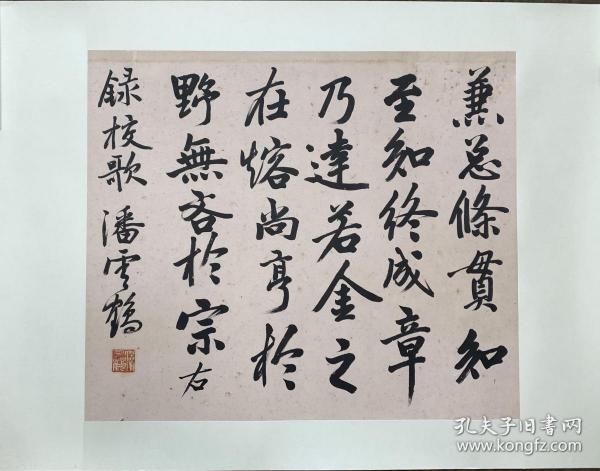 兼总條貫知
至知終成章
乃達若金之
在熔尚亨於
野無吝於宗右
録校歌 潘雲鶴
孔夫子旧书网
www.kongfz.com